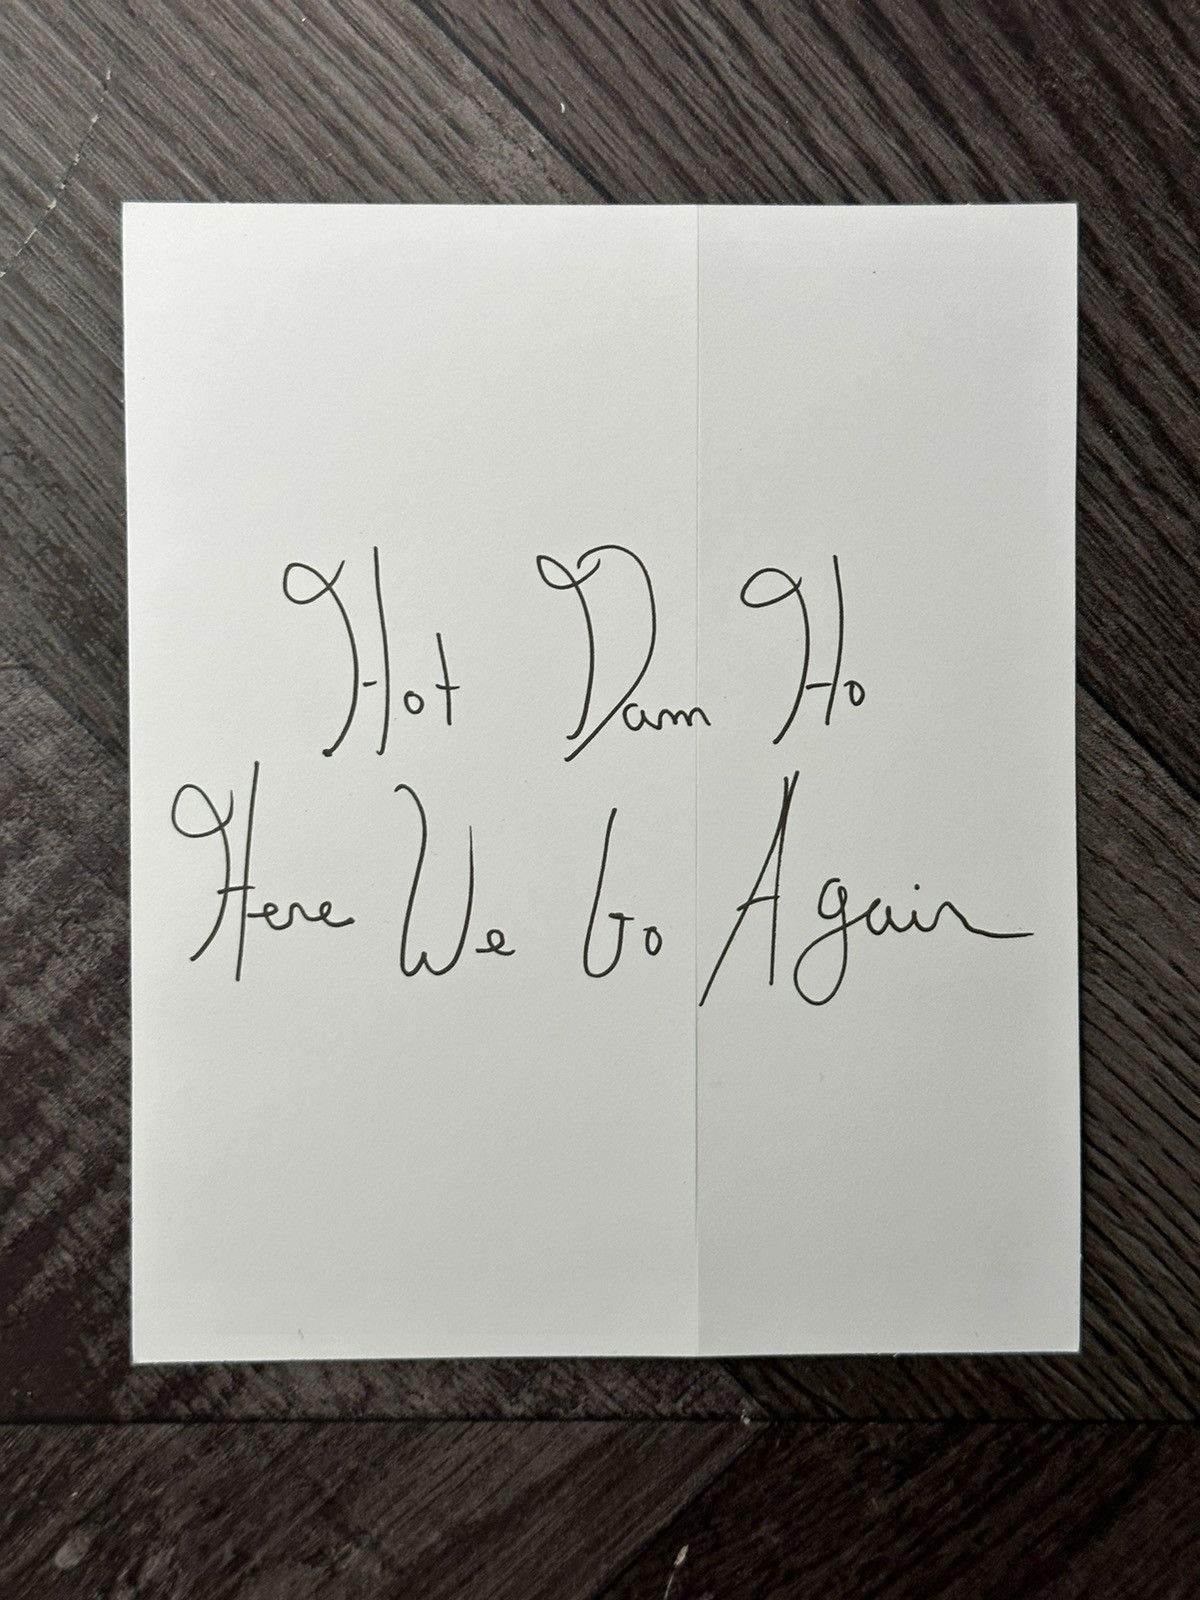 Hot Dam Ho
Here We Go Again